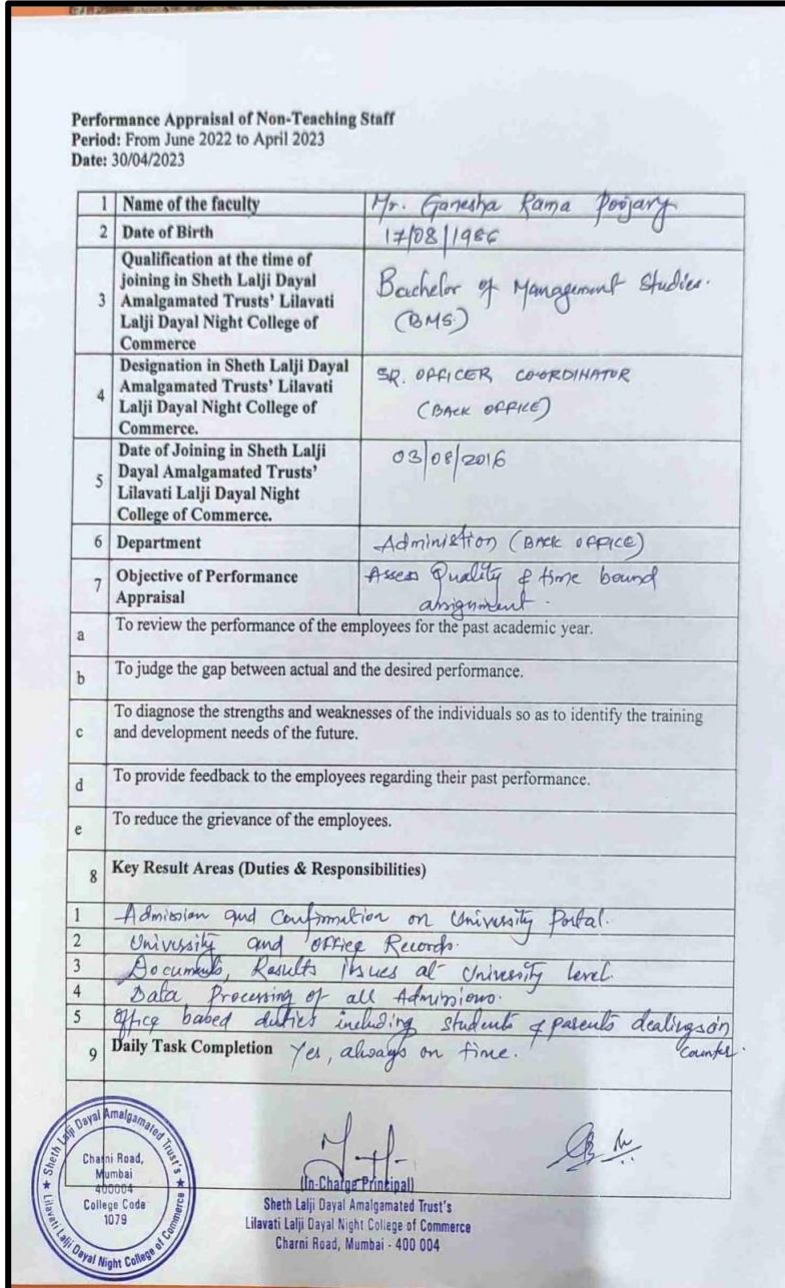 Performance Appraisal of Non-Teaching Staff
Period: From June 2022 to April 2023
Date: 30/04/2023
1 Name of the faculty Mr. Ganesha Rama Poojary
2 Date of Birth 17/08/1986
3 Qualification at the time of
joining in Sheth Lalji Dayal
Amalgamated Trusts' Lilavati
Lalji Dayal Night College of
Commerce
Bachelor of Management Studies.
(BMS.)
4 Designation in Sheth Lalji Dayal
Amalgamated Trusts' Lilavati
Lalji Dayal Night College of
Commerce.
SR. OFFICER CO-ORDINATOR
(BACK OFFICE)
5 Date of Joining in Sheth Lalji
Dayal Amalgamated Trusts'
Lilavati Lalji Dayal Night
College of Commerce.
03/08/2016
6 Department Administion (BACK OFFICE)
7 Objective of Performance
Appraisal
Assess Quality & time bound
assignment.
a To review the performance of the employees for the past academic year.
b To judge the gap between actual and the desired performance.
c To diagnose the strengths and weaknesses of the individuals so as to identify the training
and development needs of the future.
d To provide feedback to the employees regarding their past performance.
e To reduce the grievance of the employees.
8 Key Result Areas (Duties & Responsibilities)
1 Admission and Confirmation on University Portal.
2 University and office Records.
3 Documents, Results issues at University level
4 Data Processing of all Admissions.
5 office based duties including students & parents dealings on
counter.
9 Daily Task Completion Yes, always on time.
Sheth Lalji Dayal Amalgamated Trust's
Lilavati Lalji Dayal Night College of Commerce
Charni Road,
Mumbai
400004
College Code
1079
(In-Charge Principal)
Sheth Lalji Dayal Amalgamated Trust's
Lilavati Lalji Dayal Night College of Commerce
Charni Road, Mumbai - 400 004